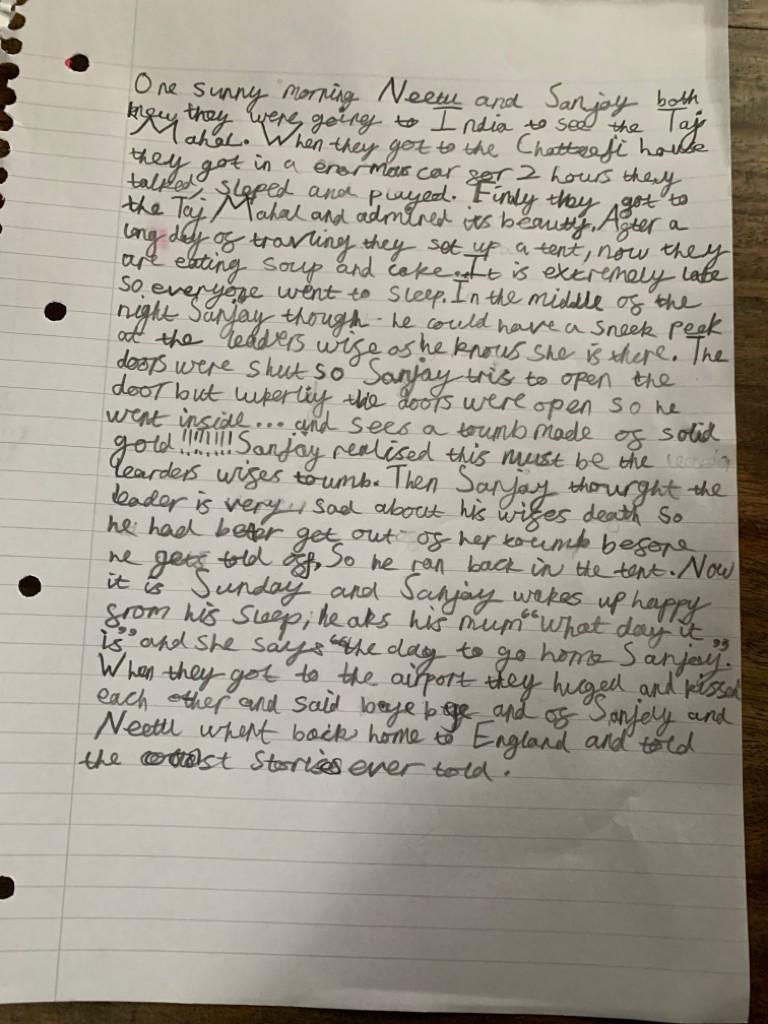 One sunny morning Neetu and Sanjay both
knew they were going to India to see the Taj
Mahal. When they got to the Chatteeji house
they got in a enormous car for 2 hours they
talked, sleped and played. Finly they got to
the Taj Mahal and admired its beauty. After a
long day of travling they set up a tent, now they
are eating soup and cake. It is extremely late
so everyone went to sleep. In the middle of the
night Sanjay though he could have a sneek peek
at the leaders wife as he knows she is there. The
doors were shut so Sanjay tris to open the
door but lukerliy the doors were open so he
went inside... and sees a toumb made of solid
gold!!!!!!!! Sanjay realised this must be the
learders wifes toumb. Then Sanjay thourght the
leader is very sad about his wifes death so
he had beter get out of her toumb before
he gets told off, So he ran back in the tent. Now
it is Sunday and Sanjay wakes up happy
from his sleep, he aks his mum "what day it
is" and she says "the day to go home Sanjay".
When they got to the airport they huged and kissed
each other and said baye bye and of Sanjely and
Neetu whent back home to England and told
the stories ever told.